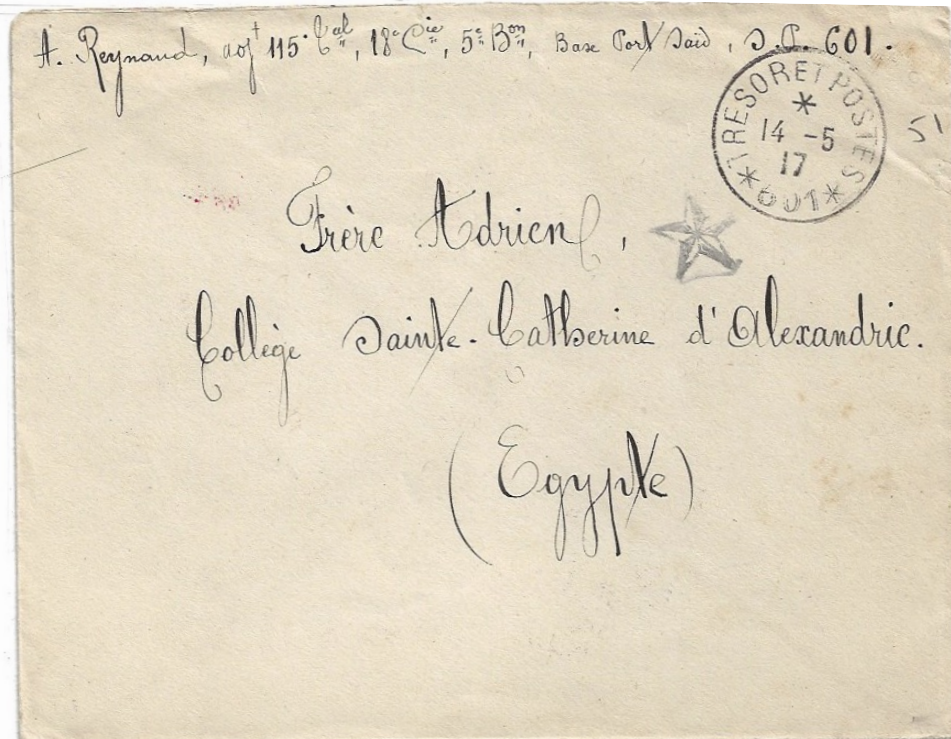 A. Reynaud, adjt 115e Cal, 18e Cie, 5e Bon, Base Port Saïd, S.P. 601.
TRESOR ET POSTES
*
14 -5
17
* 601 *
51
Frère Adrien,
Collège Sainte-Catherine d'Alexandrie.
(Egypte)